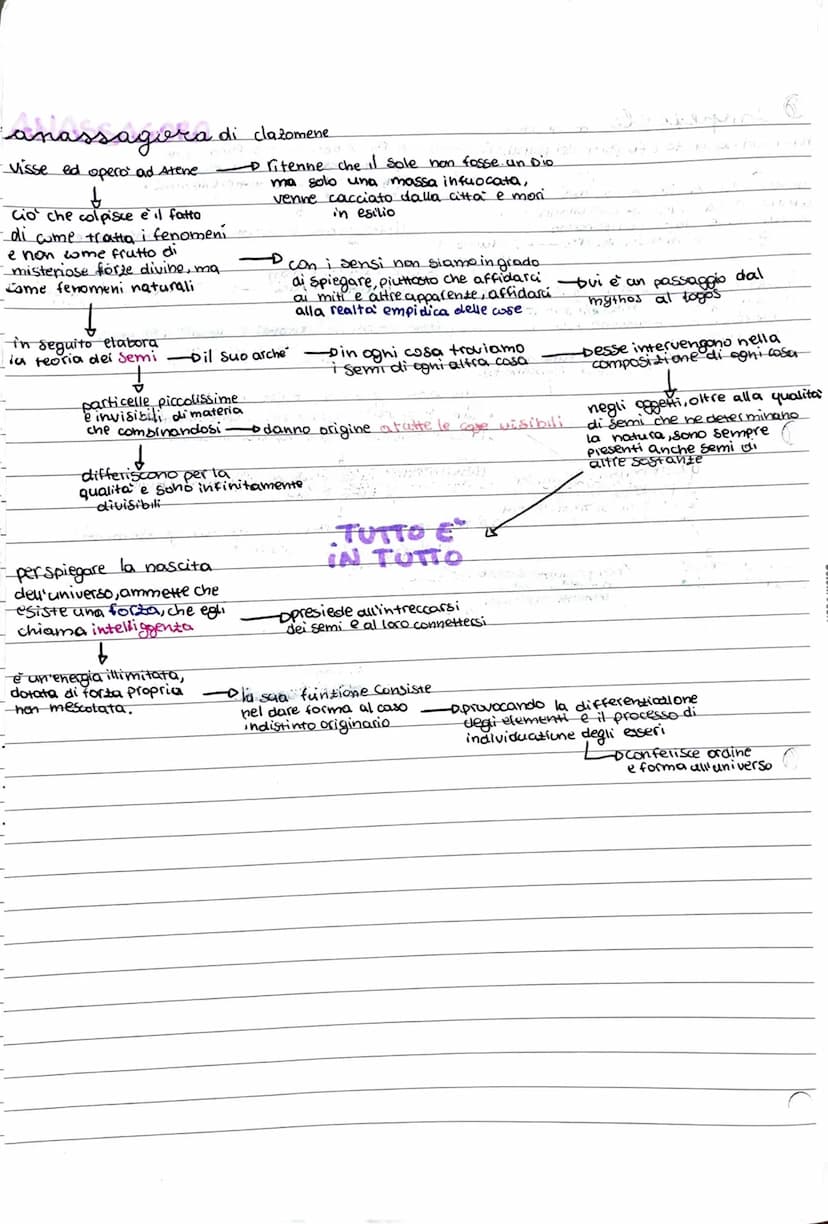 anassagora di clazomene
visse ed operò ad Atene → ritenne che il sole non fosse un Dio
ma solo una massa infuocata,
venne cacciato dalla città e morì
in esilio
ciò che colpisce è il fatto
di come tratta i fenomeni
e non come frutto di
misteriose forze divine, ma
come fenomeni naturali
→ con i sensi non siamo in grado
di spiegare, piuttosto che affidarci
ai miti e altre apparente, affidarci
alla realtà empidica delle cose
→ vi è un passaggio dal
mythos al logos
in seguito elabora
la teoria dei semi → il suo archè → in ogni cosa troviamo
i semi di ogni altra cosa
→ esse intervengono nella
composizione di ogni cosa
particelle piccolissime
e invisibili di materia
che combinandosi → danno origine a tutte le cose visibili
negli oggetti, oltre alla qualità
di semi che ne determinano
la natura, sono sempre
presenti anche semi di
altre sostanze
differiscono per la
qualità e sono infinitamente
divisibili
TUTTO E'
IN TUTTO
per spiegare la nascita
dell'universo, ammette che
esiste una forza, che egli
chiama intelligenza
→ presiede all'intreccarsi
dei semi e al loro connettersi
è un'energia illimitata,
dotata di forza propria
non mescolata.
→ la sua funzione consiste
nel dare forma al caso
indistinto originario
→ provocando la differenziazione
degli elementi e il processo di
individuazione degli esseri
→ conferisce ordine
e forma all'universo